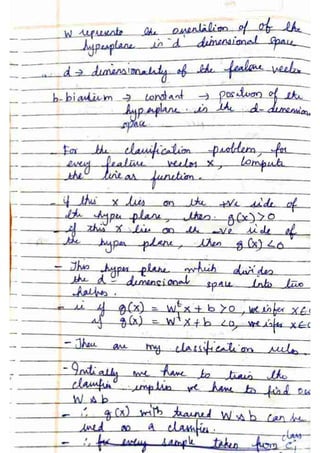 W represents the orientation of of the
hyperplane in 'd' dimensional space
d → dimensionality of the feature vector
b - bias term → constant → position of the
hyperplane in the d-dimension
space
For the classification problem, for
every feature vector x, compute
the linear function.
- if this x lies on the +ve side of
the hyper plane, then g(x)>0
- if this x lie on the -ve side of
the hyper plane, then g(x)<0
- This hyper plane which divides
the d-dimensional space into two
halves.
- ie if g(x) = Wᵗx + b > 0, we infer x∈
if g(x) = Wᵗx + b <0, we infer x∈
- These are my classification rules.
- Initially we have to train the
classifier implies we have to find our
W & b
- ∴ g(x) with trained W & b can be
used as a classifier.
- ∴ for every sample taken from class C₁